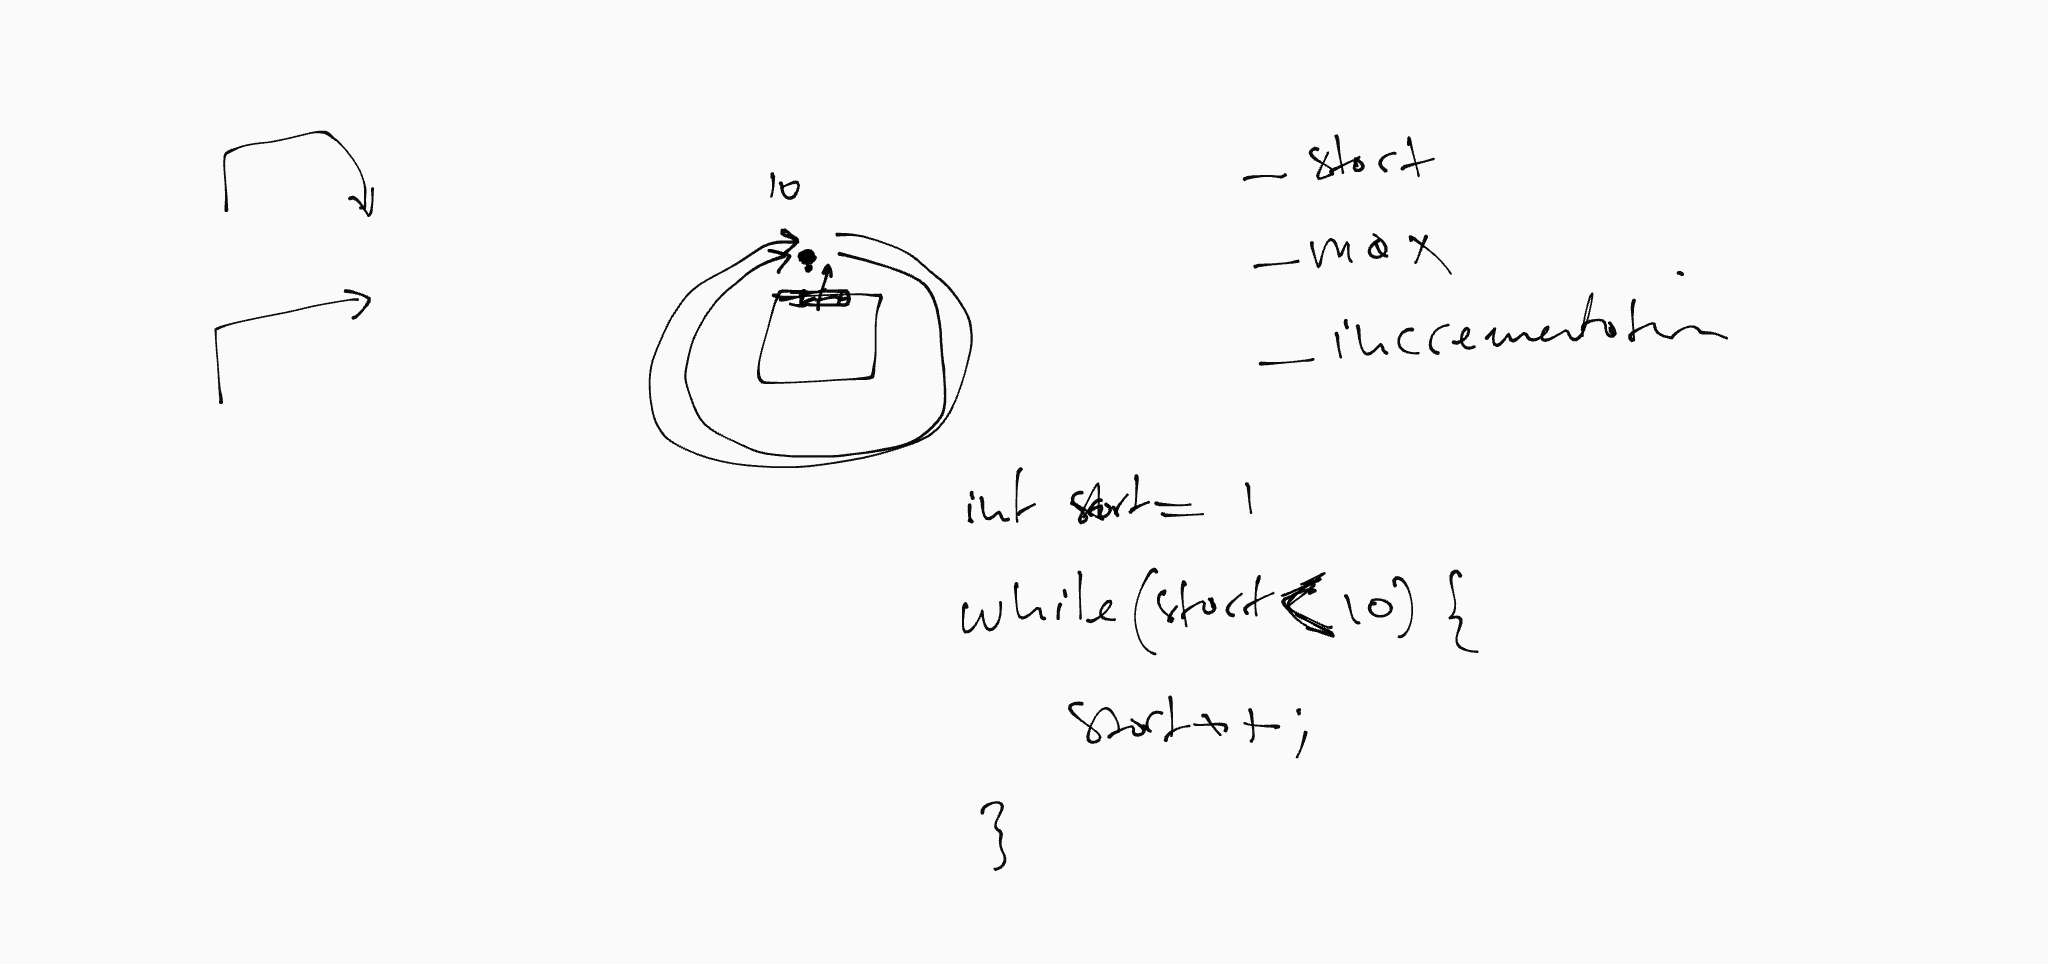 10
- start
- max
- incrementation
int start = 1
while (start < 10) {
start++;
}